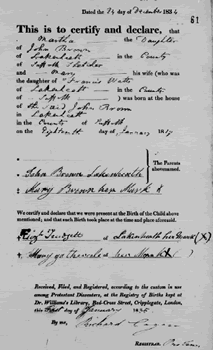 Dated the 29 day of December 1834
61
This is to certify and declare, that
Martha the Daughter
of John Brown
of Lakenheath in the County
of Suffolk
and Mary his wife (who was
the daughter of Francis
of Lakenheath in the County
of Suffolk) was born at the house
of the said John Brown
in Lakenheath
in the County of Suffolk
on the Eighteenth day of January 1817
The Parents
abovenamed.
John Brown Lakenheath
Mary Brown her Mark X
We certify and declare that we were present at the Birth of the Child above
mentioned; and that such Birth took place at the time and place aforesaid.
Lakenheath her Mark (X)
Mary her Mark
Received, Filed, and Registered, according to the custom in use
among Protestant Dissenters, at the Registry of Births kept at
Dr. Williams's Library, Red-Cross Street, Cripplegate, London,
this day of January 1835
By me, Richard
Registrar